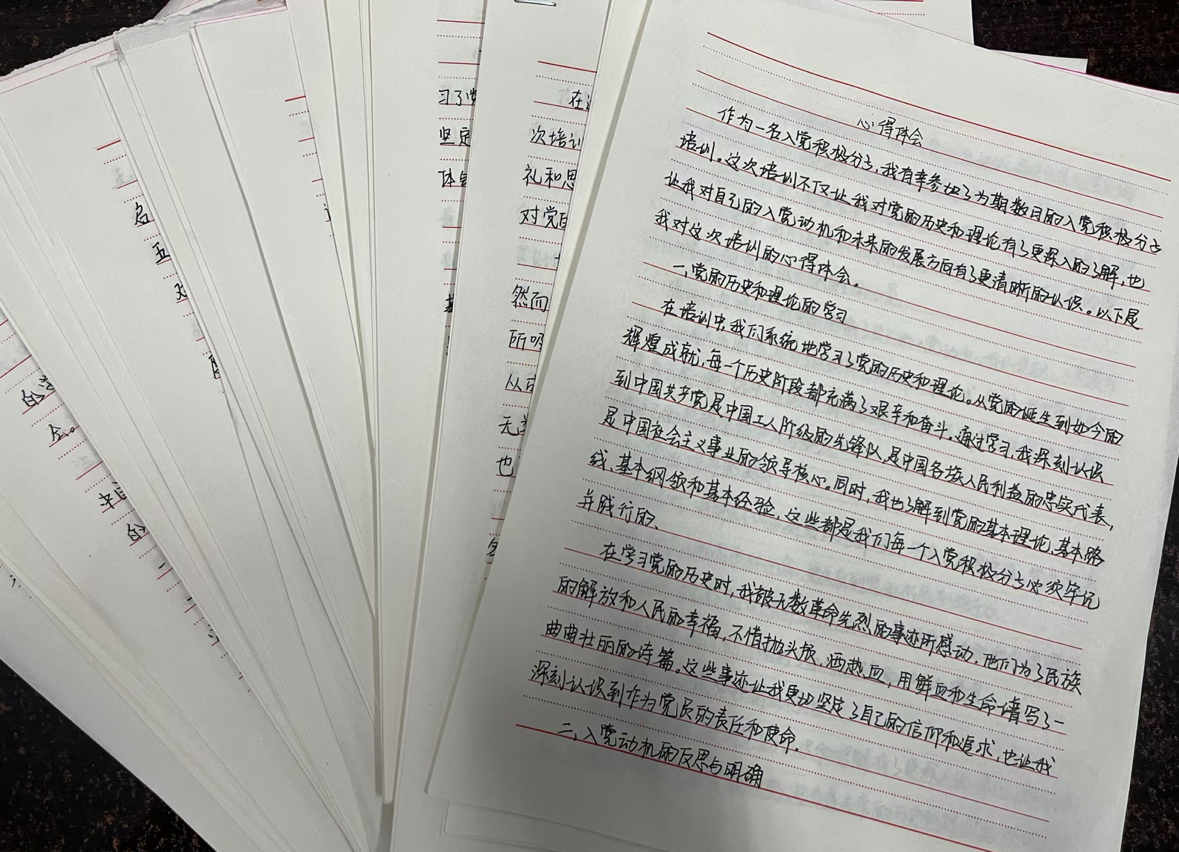 心得体会
作为一名入党积极分子，我有幸参加了为期数日的入党积极分子
培训。这次培训不仅让我对党的历史和理论有了更深入的了解，也
让我对自己的入党动机和未来的发展方向有了更清晰的认识。以下是
我对这次培训的心得体会。
一、党的历史和理论的学习
在培训中，我们系统地学习了党的历史和理论。从党的诞生到如今的
辉煌成就，每一个历史阶段都充满了艰辛和奋斗。通过学习，我深刻认识
到中国共产党是中国工人阶级的先锋队，是中国各族人民利益的忠实代表，
是中国社会主义事业的领导核心。同时，我也了解到党的基本理论，基本路
线，基本纲领和基本经验，这些都是我们每一个入党积极分子必须牢记
并践行的。
在学习党的历史时，我被无数革命先烈的事迹所感动，他们为了民族
的解放和人民的幸福，不惜抛头颅，洒热血，用鲜血和生命谱写了一
曲曲壮丽的诗篇。这些事迹让我更加坚定了自己的信仰和追求，也让我
深刻认识到作为党员的责任和使命。
二、入党动机的反思与明确
在
次培训
礼和思
对党的
然而
所
从
无
也
习了
坚定
体
名
五
的
的